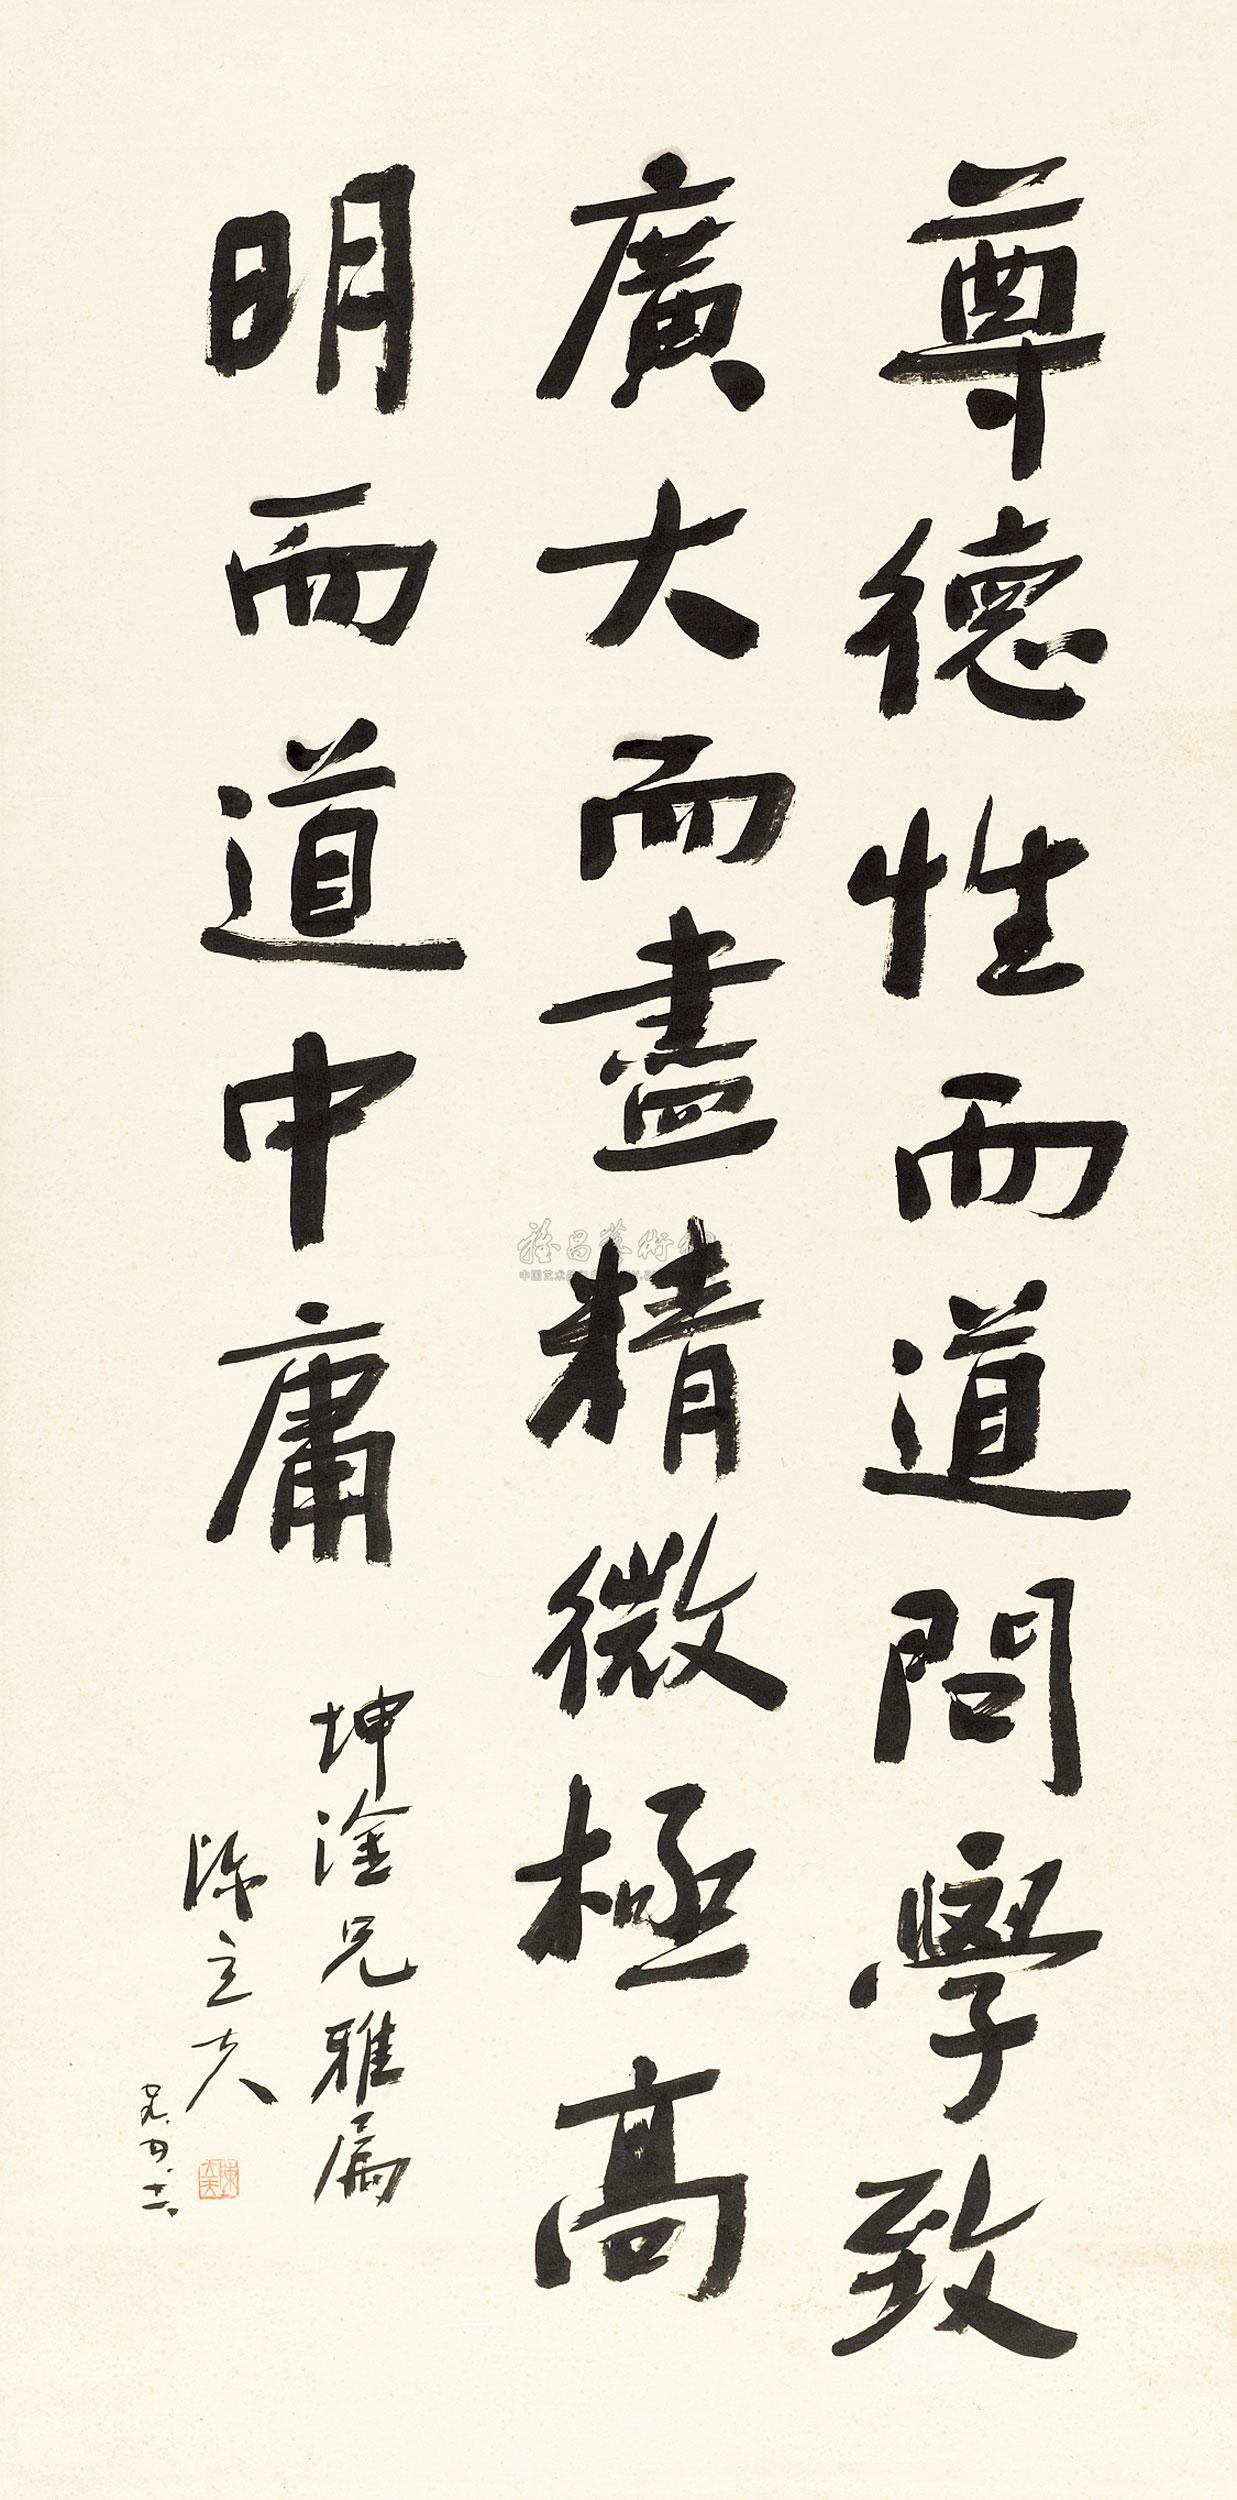 尊德性而道問學致
廣大而盡精微極高
明而道中庸
坤淦兄雅屬
陳立夫
陳立夫